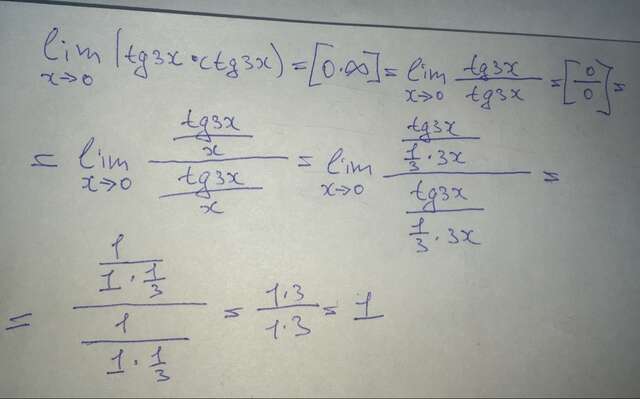 lim x→0 (tg3x · ctg3x) = [0·∞] = lim x→0 tg3x/tg3x = [0/0] =
= lim x→0 (tg3x/x)/(tg3x/x) = lim x→0 (tg3x/(1/3 · 3x))/(tg3x/(1/3 · 3x)) =
= (1/(1 · 1/3))/(1/(1 · 1/3)) = 1·3/1·3 = 1